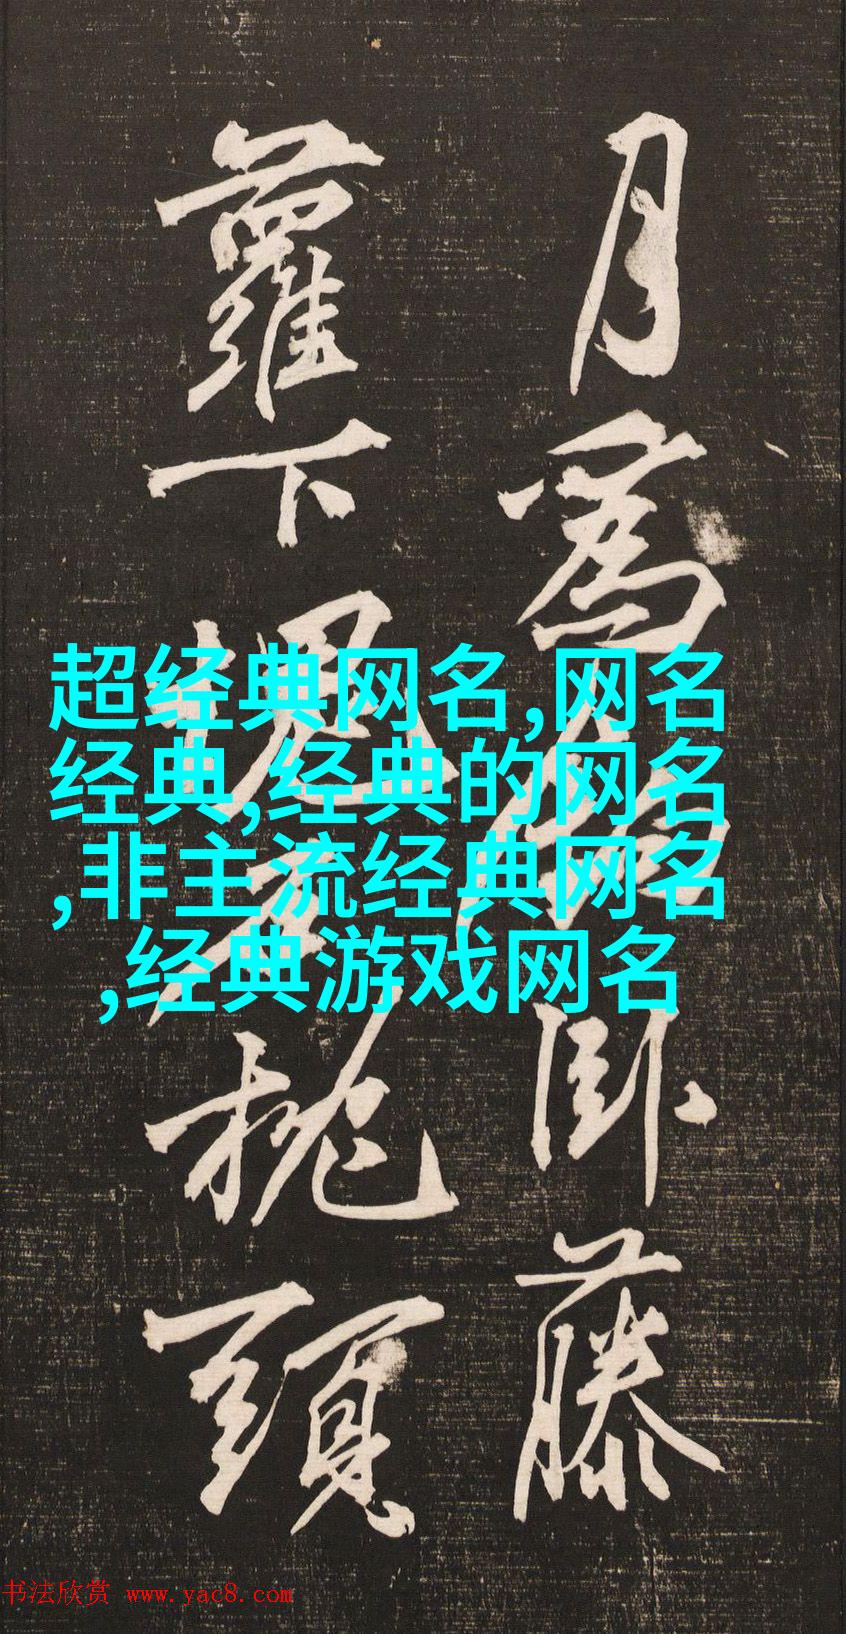 月為
卧藤
蘿下
枕頭
超经典网名,网名
经典,经典的网名
,非主流经典网名
,经典游戏网名
书法欣赏 www.yac8.com